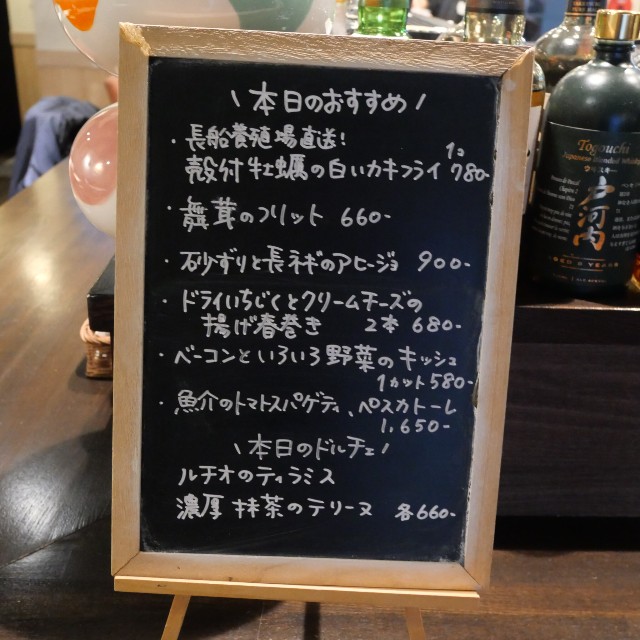 \ 本日のおすすめ /
・長船養殖場直送!
殻付牡蠣の白いカキフライ 1コ 780-
・舞茸のフリット 660-
・砂ずりと長ネギのアヒージョ 900-
・ドライいちじくとクリームチーズの
揚げ春巻き 2本 680-
・ベーコンといろいろ野菜のキッシュ
1カット 580-
・魚介のトマトスパゲティ、ペスカトーレ
1,650-
\ 本日のドルチェ /
ルチオのティラミス
濃厚 抹茶のテリーヌ 各660-
Togouchi
Japanese Blended Whisky
戸河内